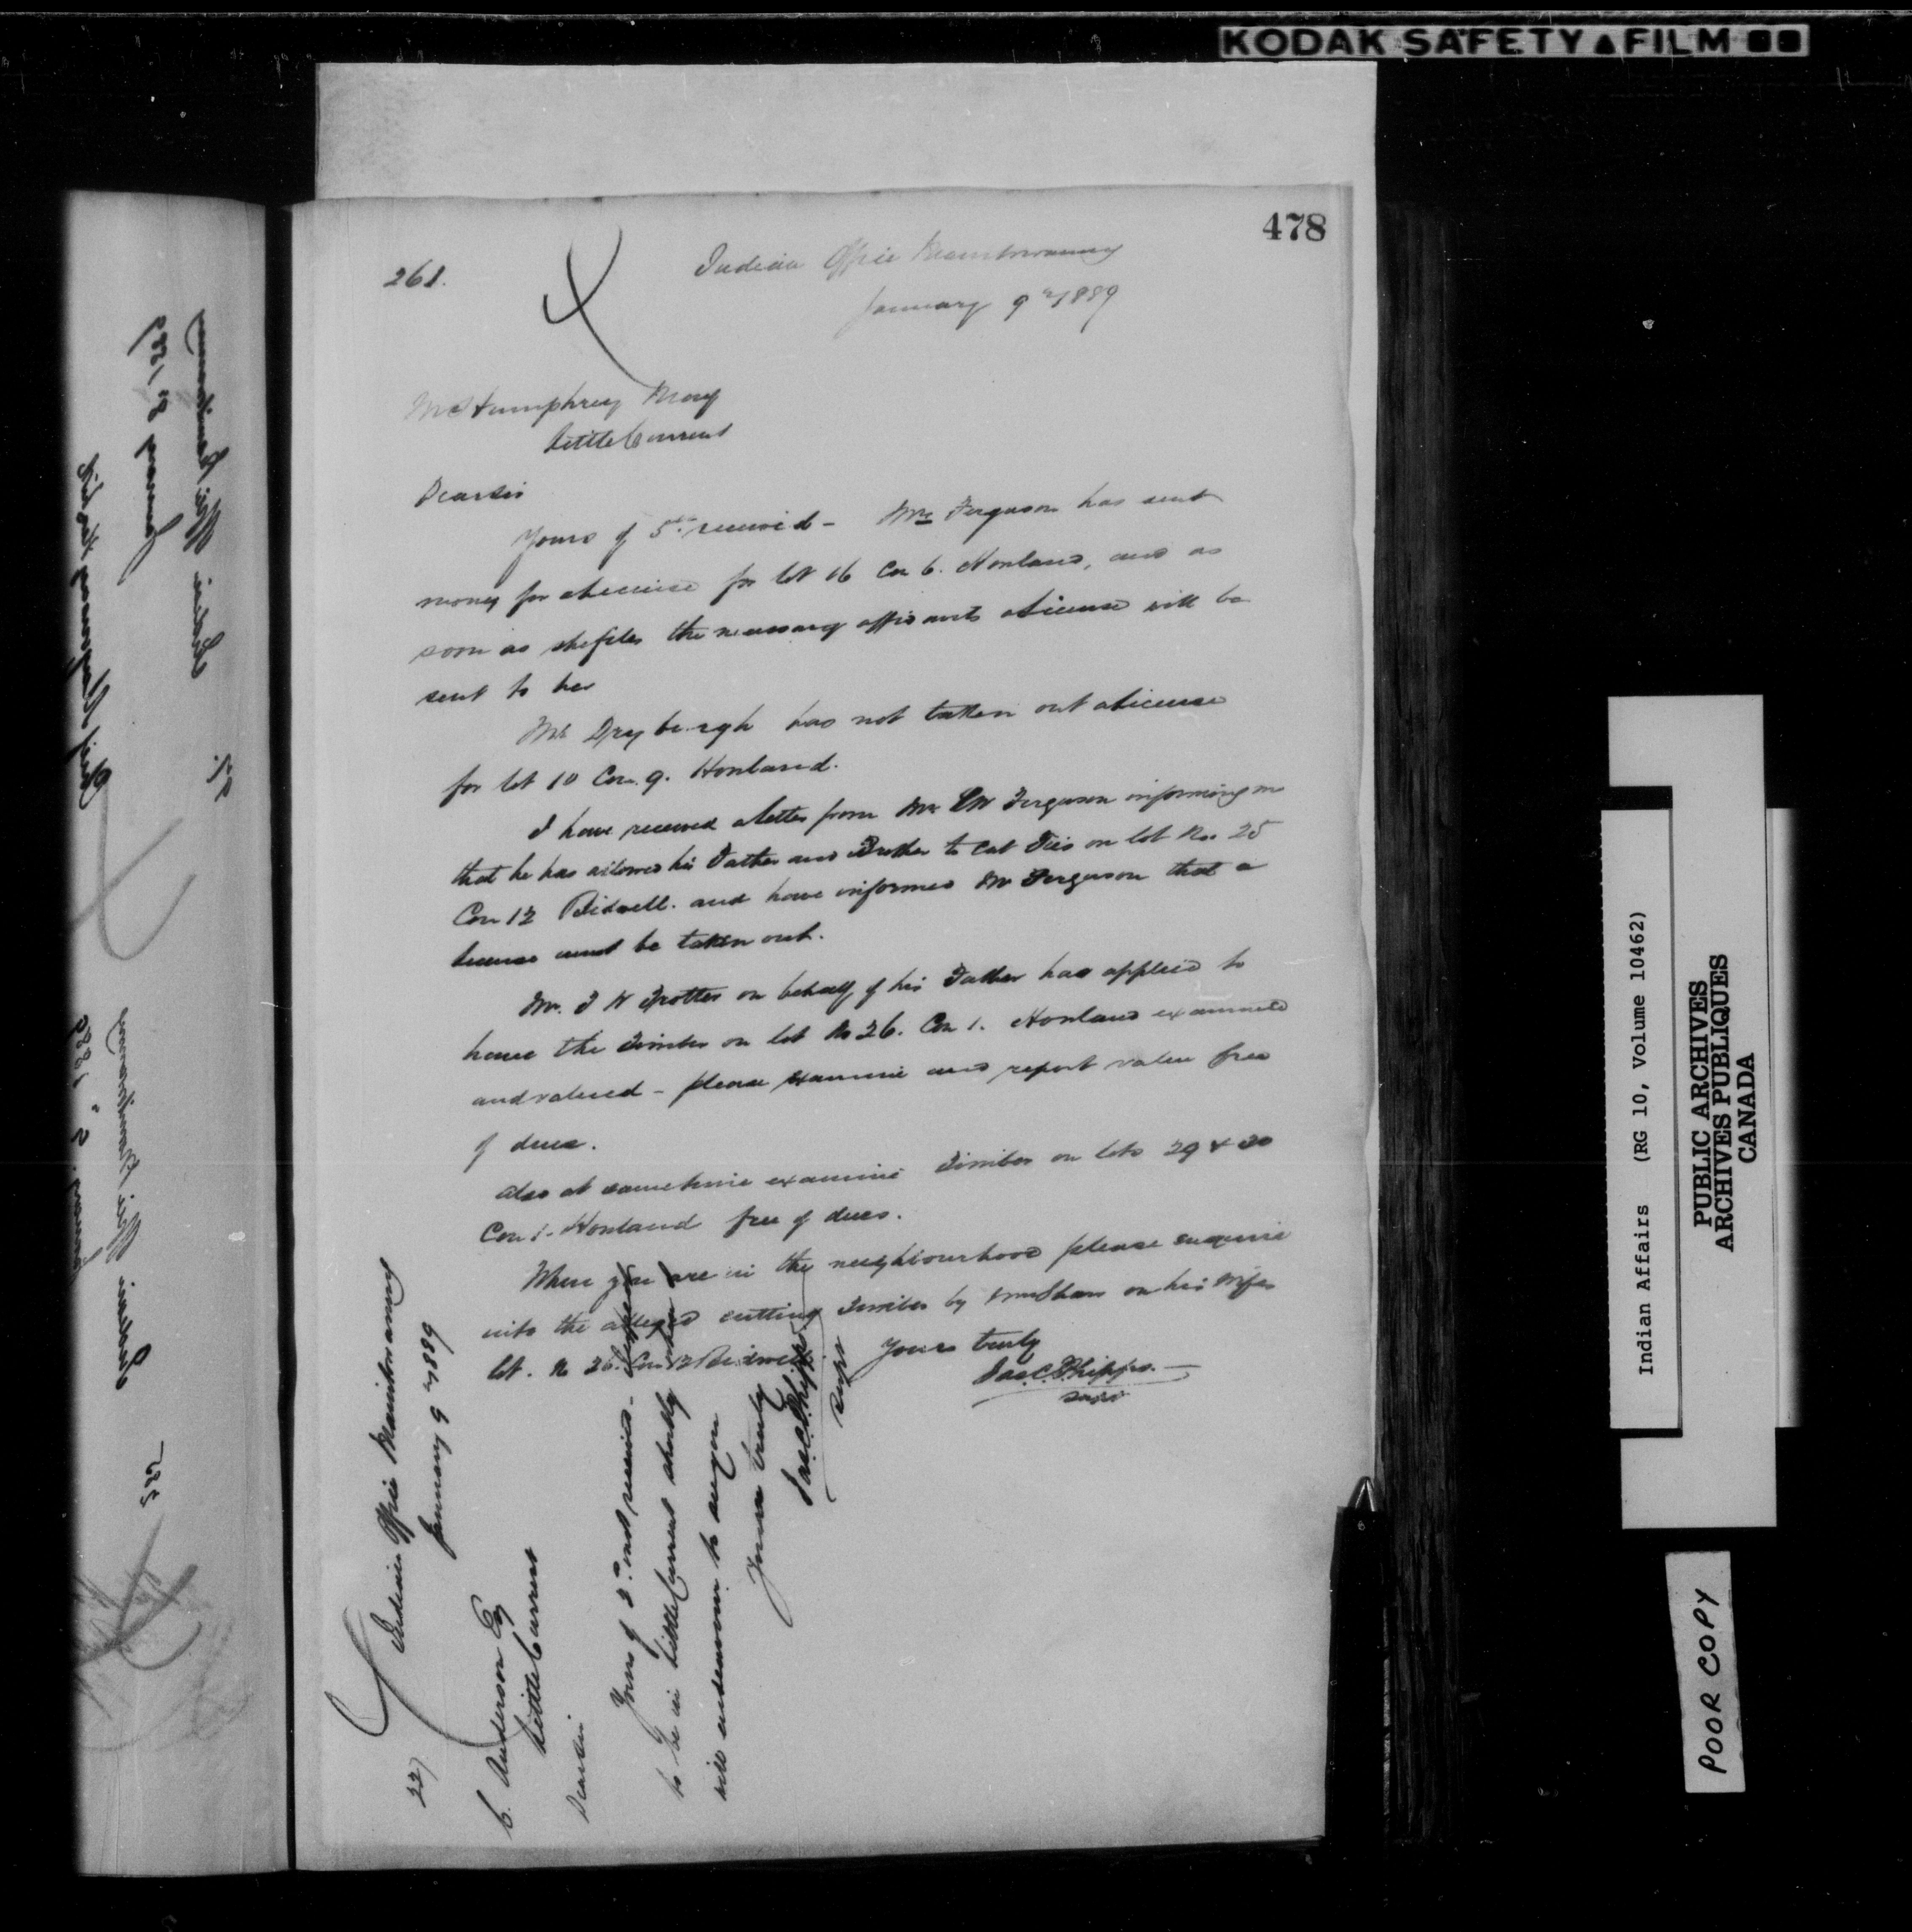 KODAK SAFETY FILM
478
261.
Indian Office Manitowaning
January 9th 1889
Mr Humphrey May
Little Current
Dear Sir
Yours of 5th received - Mrs Ferguson has sent
money for a license for lot 16 Con 6. Howland, and as
soon as she files the necessary affidavits a License will be
sent to her
Mr Drybergh has not taken out a License
for lot 10 Con. 9. Howland.
I have received a letter from Mr Ferguson informing me
that he has allowed his Father and Brother to cut Ties on lot No. 25
Con 12 Bidwell. and have informed Mr Ferguson that a
license must be taken out.
Mr. Trotter on behalf of his Father has applied to
have the Timber on lot No 26. Con 1. Howland examined
and valued - please examine and report value free
of dues.
Also at same time examine Timber on lots 29 & 30
Con 1. Howland free of dues.
When you are in the neighbourhood please enquire
into the alleged cutting Timber by on his Wifes
lot. No 26. Con 12 Bidwell
Yours truly
Jas. C. Phipps.
Supt
227
Indian Office Manitowaning
January 9th 1889
C. Anderson Esq
Little Current
Dear Sir
Yours of inst received -
to be in Little Current shortly
will endeavour to
Yours truly
Jas. C. Phipps
Supt
Indian Office Manitowaning
January 8th 1889
Indian Office Manitowaning
January 1889
Indian Affairs (RG 10, Volume 10462)
PUBLIC ARCHIVES
ARCHIVES PUBLIQUES
CANADA
POOR COPY